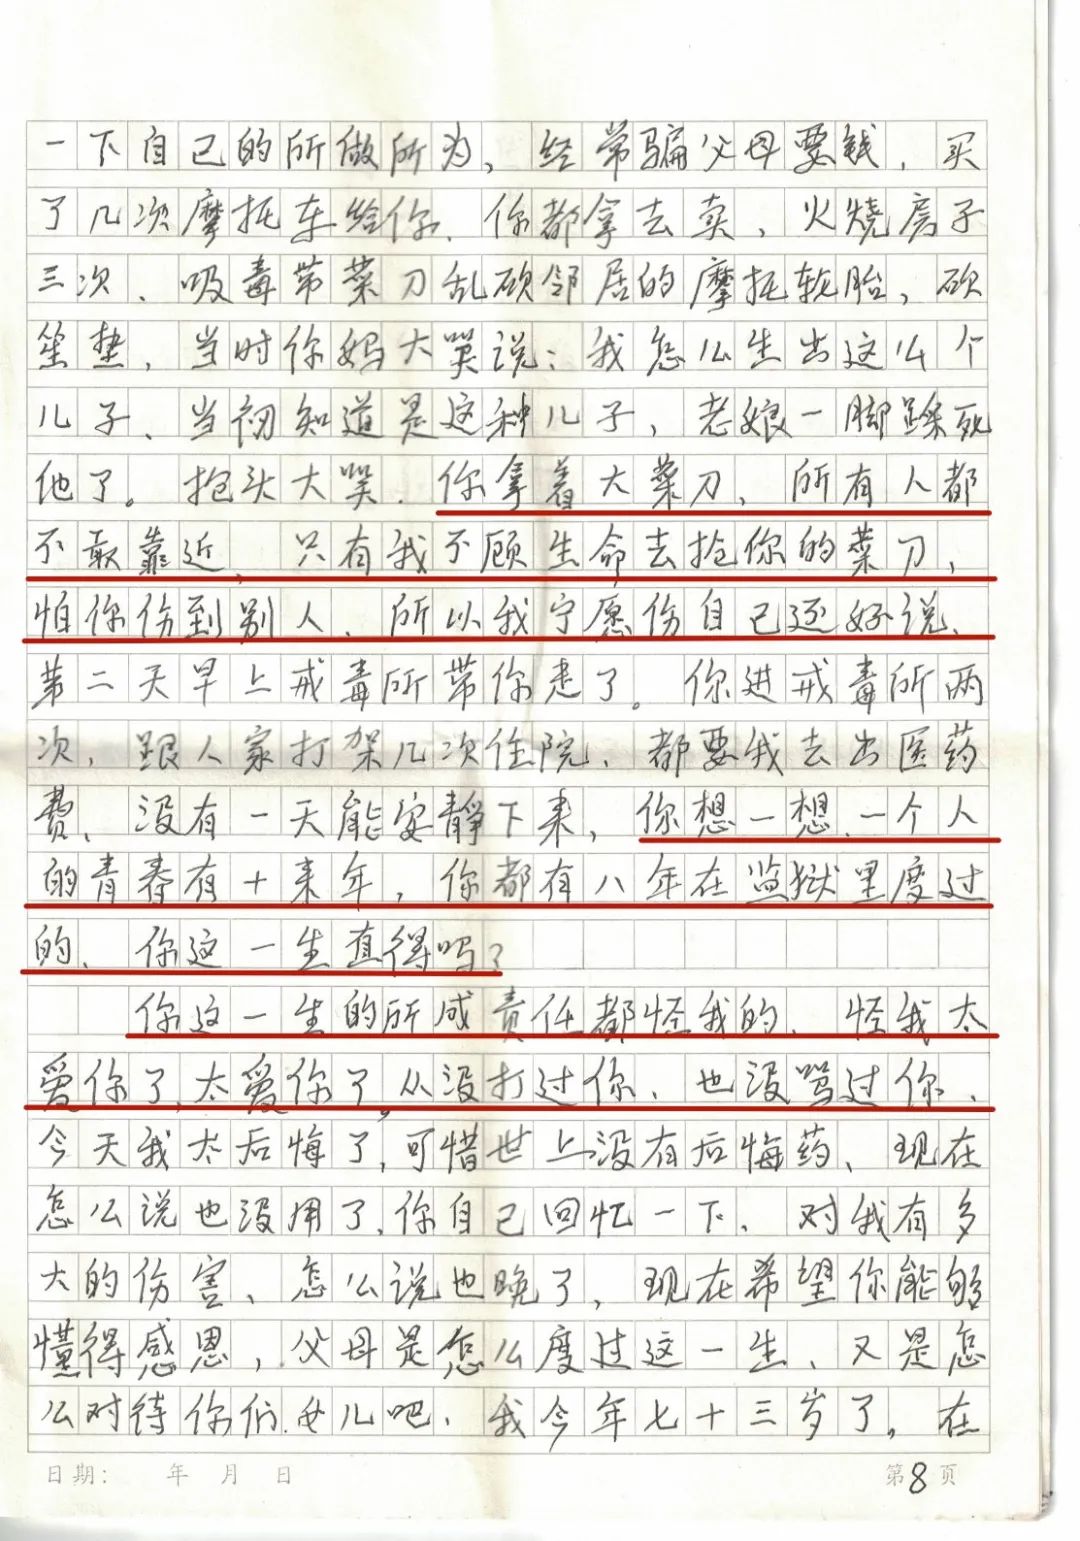 一下自己的所做所为，经常骗父母要钱，买
了几次摩托车给你、你都拿去卖，火烧房子
三次、吸毒带菜刀乱砍邻居的摩托轮胎，砍
坐垫，当时你妈大哭说：我怎么生出这么个
儿子、当初知道是这种儿子，老娘一脚踩死
他了。抱头大哭．你拿着大菜刀、所有人都
不敢靠近、只有我不顾生命去抢你的菜刀、
怕你伤到别人、所以我宁愿伤自己还好说、
第二天早上戒毒所带你走了。你进戒毒所两
次，跟人家打架几次住院、都要我去出医药
费、没有一天能安静下来，你想一想、一个人
的青春有十来年，你都有八年在监狱里度过
的、你这一生直得吗？
你这一生的所成责任都怪我的、怪我太
爱你了、太爱你了。从没打过你、也没骂过你、
今天我太后悔了，可惜世上没有后悔药、现在
怎么说也没用了，你自己回忆一下、对我有多
大的伤害、怎么说也晚了，现在希望你能够
懂得感恩，父母是怎么度过这一生、又是怎
么对待你们儿女吧．我今年七十三岁了。在
日期： 年 月 日 第8页